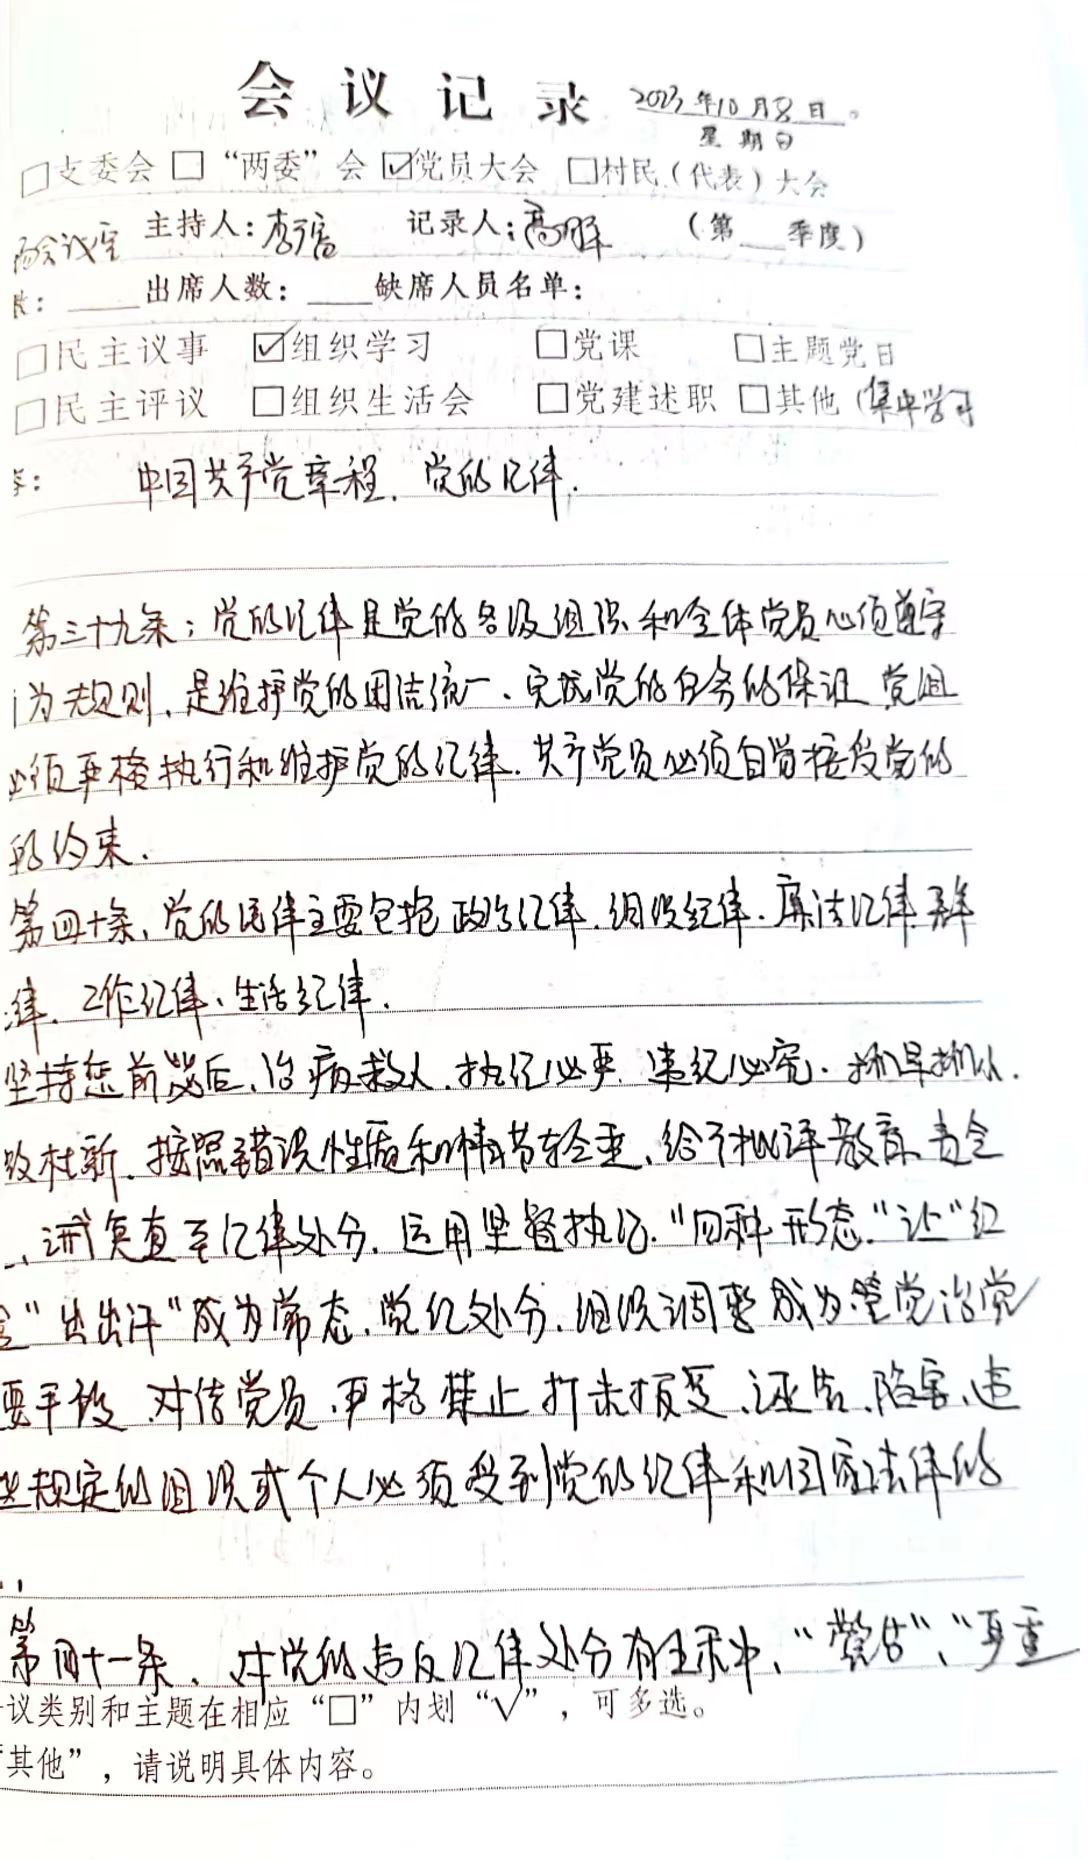 会议记录 2023年10月8日。
星期日
□支委会 □“两委”会 ☑党员大会 □村民（代表）大会
会议室 主持人： 记录人： （第___季度）
：____出席人数：____缺席人员名单：
□民主议事 ☑组织学习 □党课 □主题党日
□民主评议 □组织生活会 □党建述职 □其他（集中学习
： 中国共产党章程、党的纪律.
第三十九条：党的纪律是党的各级组织和全体党员必须遵守
为规则、是维护党的团结统一、完成党的任务的保证 党组
必须严格执行和维护党的纪律.共产党员必须自觉接受党的
的约束.
第四十条、党的纪律主要包括政治纪律.组织纪律.廉洁纪律 群
律、工作纪律、生活纪律.
坚持惩前毖后、治病救人.执纪必严.违纪必究.抓早抓小.
按照错误性质和情节轻重、给予批评教育 责令
、诫免直至纪律处分.运用监督执纪.“四种形态.”让“红
“出出汗”成为常态.党纪处分.组织调整成为管党治党
要手段 对待党员.严格禁止打击报复、诬告、陷害、违
些规定的组织或个人必须受到党的纪律和国家法律的
第四十一条、对党的违反纪律处分有五种、“警告”、“严重
议类别和主题在相应“□”内划“√”，可多选。
“其他”，请说明具体内容。